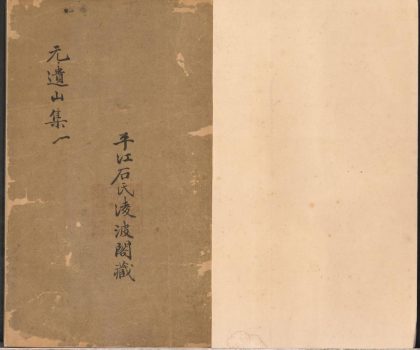 元遺山集一
平江石氏淩波閣藏